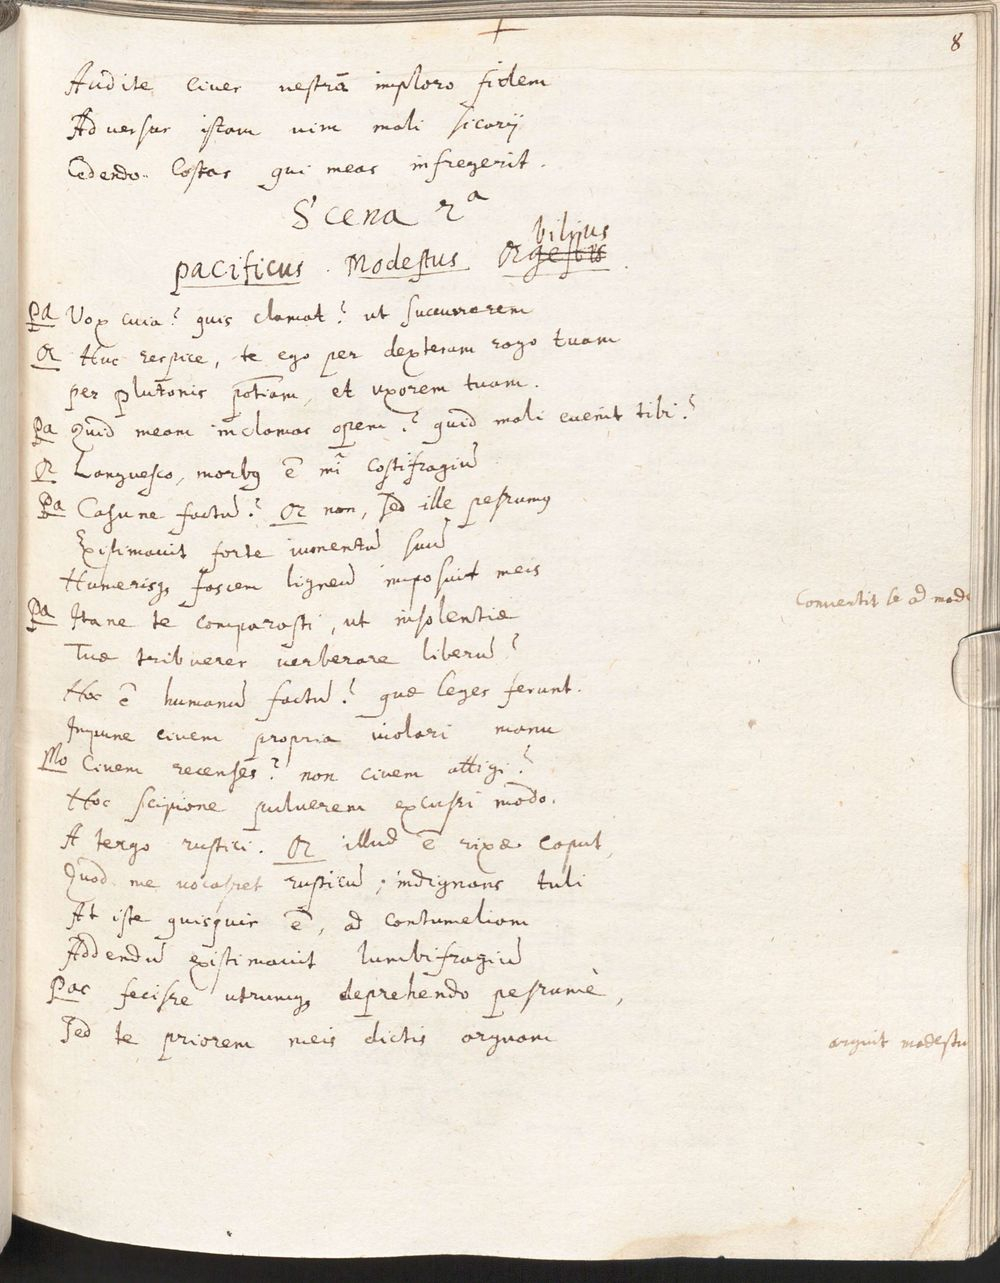 8
Audite ciues uestrā imploro fidem
Aduersus istam uim mali sicarij
Cedendo Costas qui meas infregerit.
Scena 2ª
bilijus
pacificus. Modestus Orgestis.
Pa Vox cuia? quis clamat? ut succurrerem
Or Huc respice, te ego per dexteram rogo tuam
per plutonis potiam, et uxorem tuam.
Pa Quid meam inclamas opem? quid mali euenit tibi?
Or Languesco, morbq ē mī costifragiū
Pa Casu ne factū? Or non, sed ille pessumq
Existimauit forte iumentū suū
Humerisq fascem ligneū imposuit meis
Conuertit se ad mod
Pa Itane te comparasti, ut insolentiæ
Tuæ tribueres uerberare liberū?
Hoc ē humanū factū? quæ leges ferunt.
Impune ciuem propria uiolari manu
Mo Ciuem recenses? non ciuem attigi?
Hoc scipione puluerem excussi modo.
A tergo rustici. Or illud ē rixæ caput,
Quod me uocasset rusticū; indignans tuli
At iste quisquis ē, ad contumeliam
Addendū existimauit lumbifragiū
Pac fecisse utrumq deprehendo pessumè,
Sed te priorem meis dictis arguam
arguit modestu